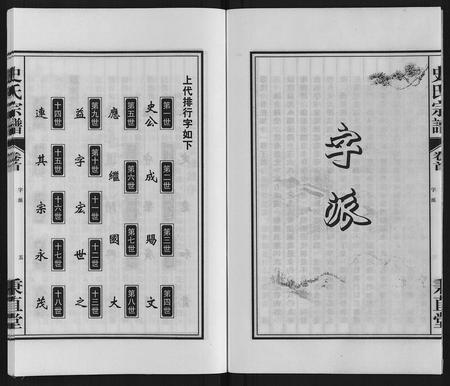 字派
史氏宗譜
卷首
字派
秉直堂
上代排行字如下
第一世 史公
第二世 成
第三世 賜
第四世 文
第五世 應
第六世 繼
第七世 國
第八世 大
第九世 益
第十世 字
十一世 宏
十二世 世
十三世 之
十四世 連
十五世 其
十六世 宗
十七世 永
十八世 茂
史氏宗譜
卷首
字派
五
秉直堂